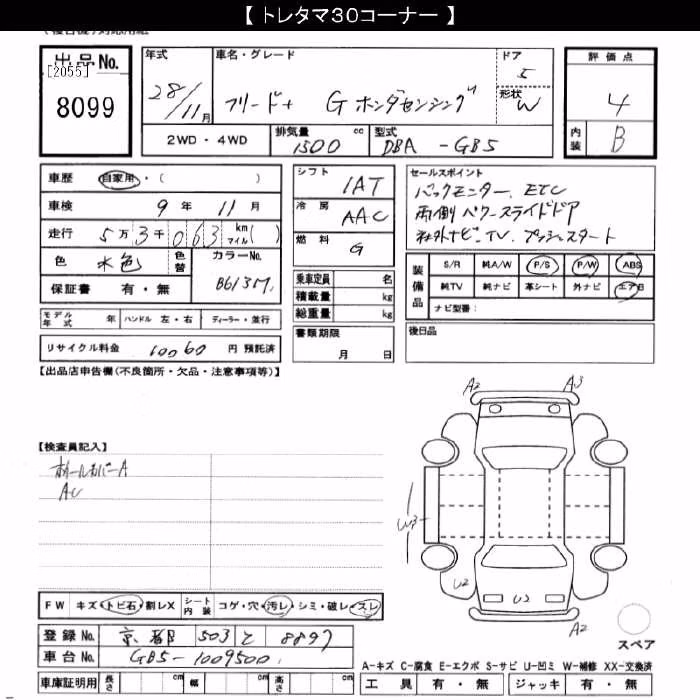 【 トレタマ30コーナー 】
出品No.
[2055]
8099
年式
28/11月
車名・グレード
フリード+ G ホンダセンシング
ドア
5
形状
W
評価点
4
内装
B
2WD・4WD
排気量
1500 cc
型式
DBA -GB5
車歴 自家用・( )
車検 9年 11月
走行 5万3千063 km マイル( )
色 水色 色替 カラーNo. B613M
保証書 有・無
モデル年式 年 ハンドル 左・右 ディーラー・並行
リサイクル料金 10060 円 預託済
シフト IAT
冷房 AAC
燃料 G
乗車定員 名
積載量 kg
総重量 kg
書類期限
月 日
セールスポイント
バックモニター. ETC
両側パワースライドドア
社外ナビ・TV. プッシュスタート
装備品
S/R 純A/W P/S P/W ABS
純TV 純ナビ 革シート 外ナビ エアB
ナビ型番:
後日品
【出品店申告欄(不良箇所・欠品・注意事項等)】
【検査員記入】
ホイールカバーA
AC
A2 A3
W3
U2 U2
A2
スペア
FW キズ・トビ石・割レX シート内装 コゲ・穴・汚レ・シミ・破レ・スレ
登録No. 京都 503 と 8897
車台No. GB5-1009500
車庫証明用 長さ cm 幅 cm 高さ cm
A-キズ C-腐食 E-エクボ S-サビ U-凹ミ W-補修 XX-交換済
工具 有・無 ジャッキ 有・無